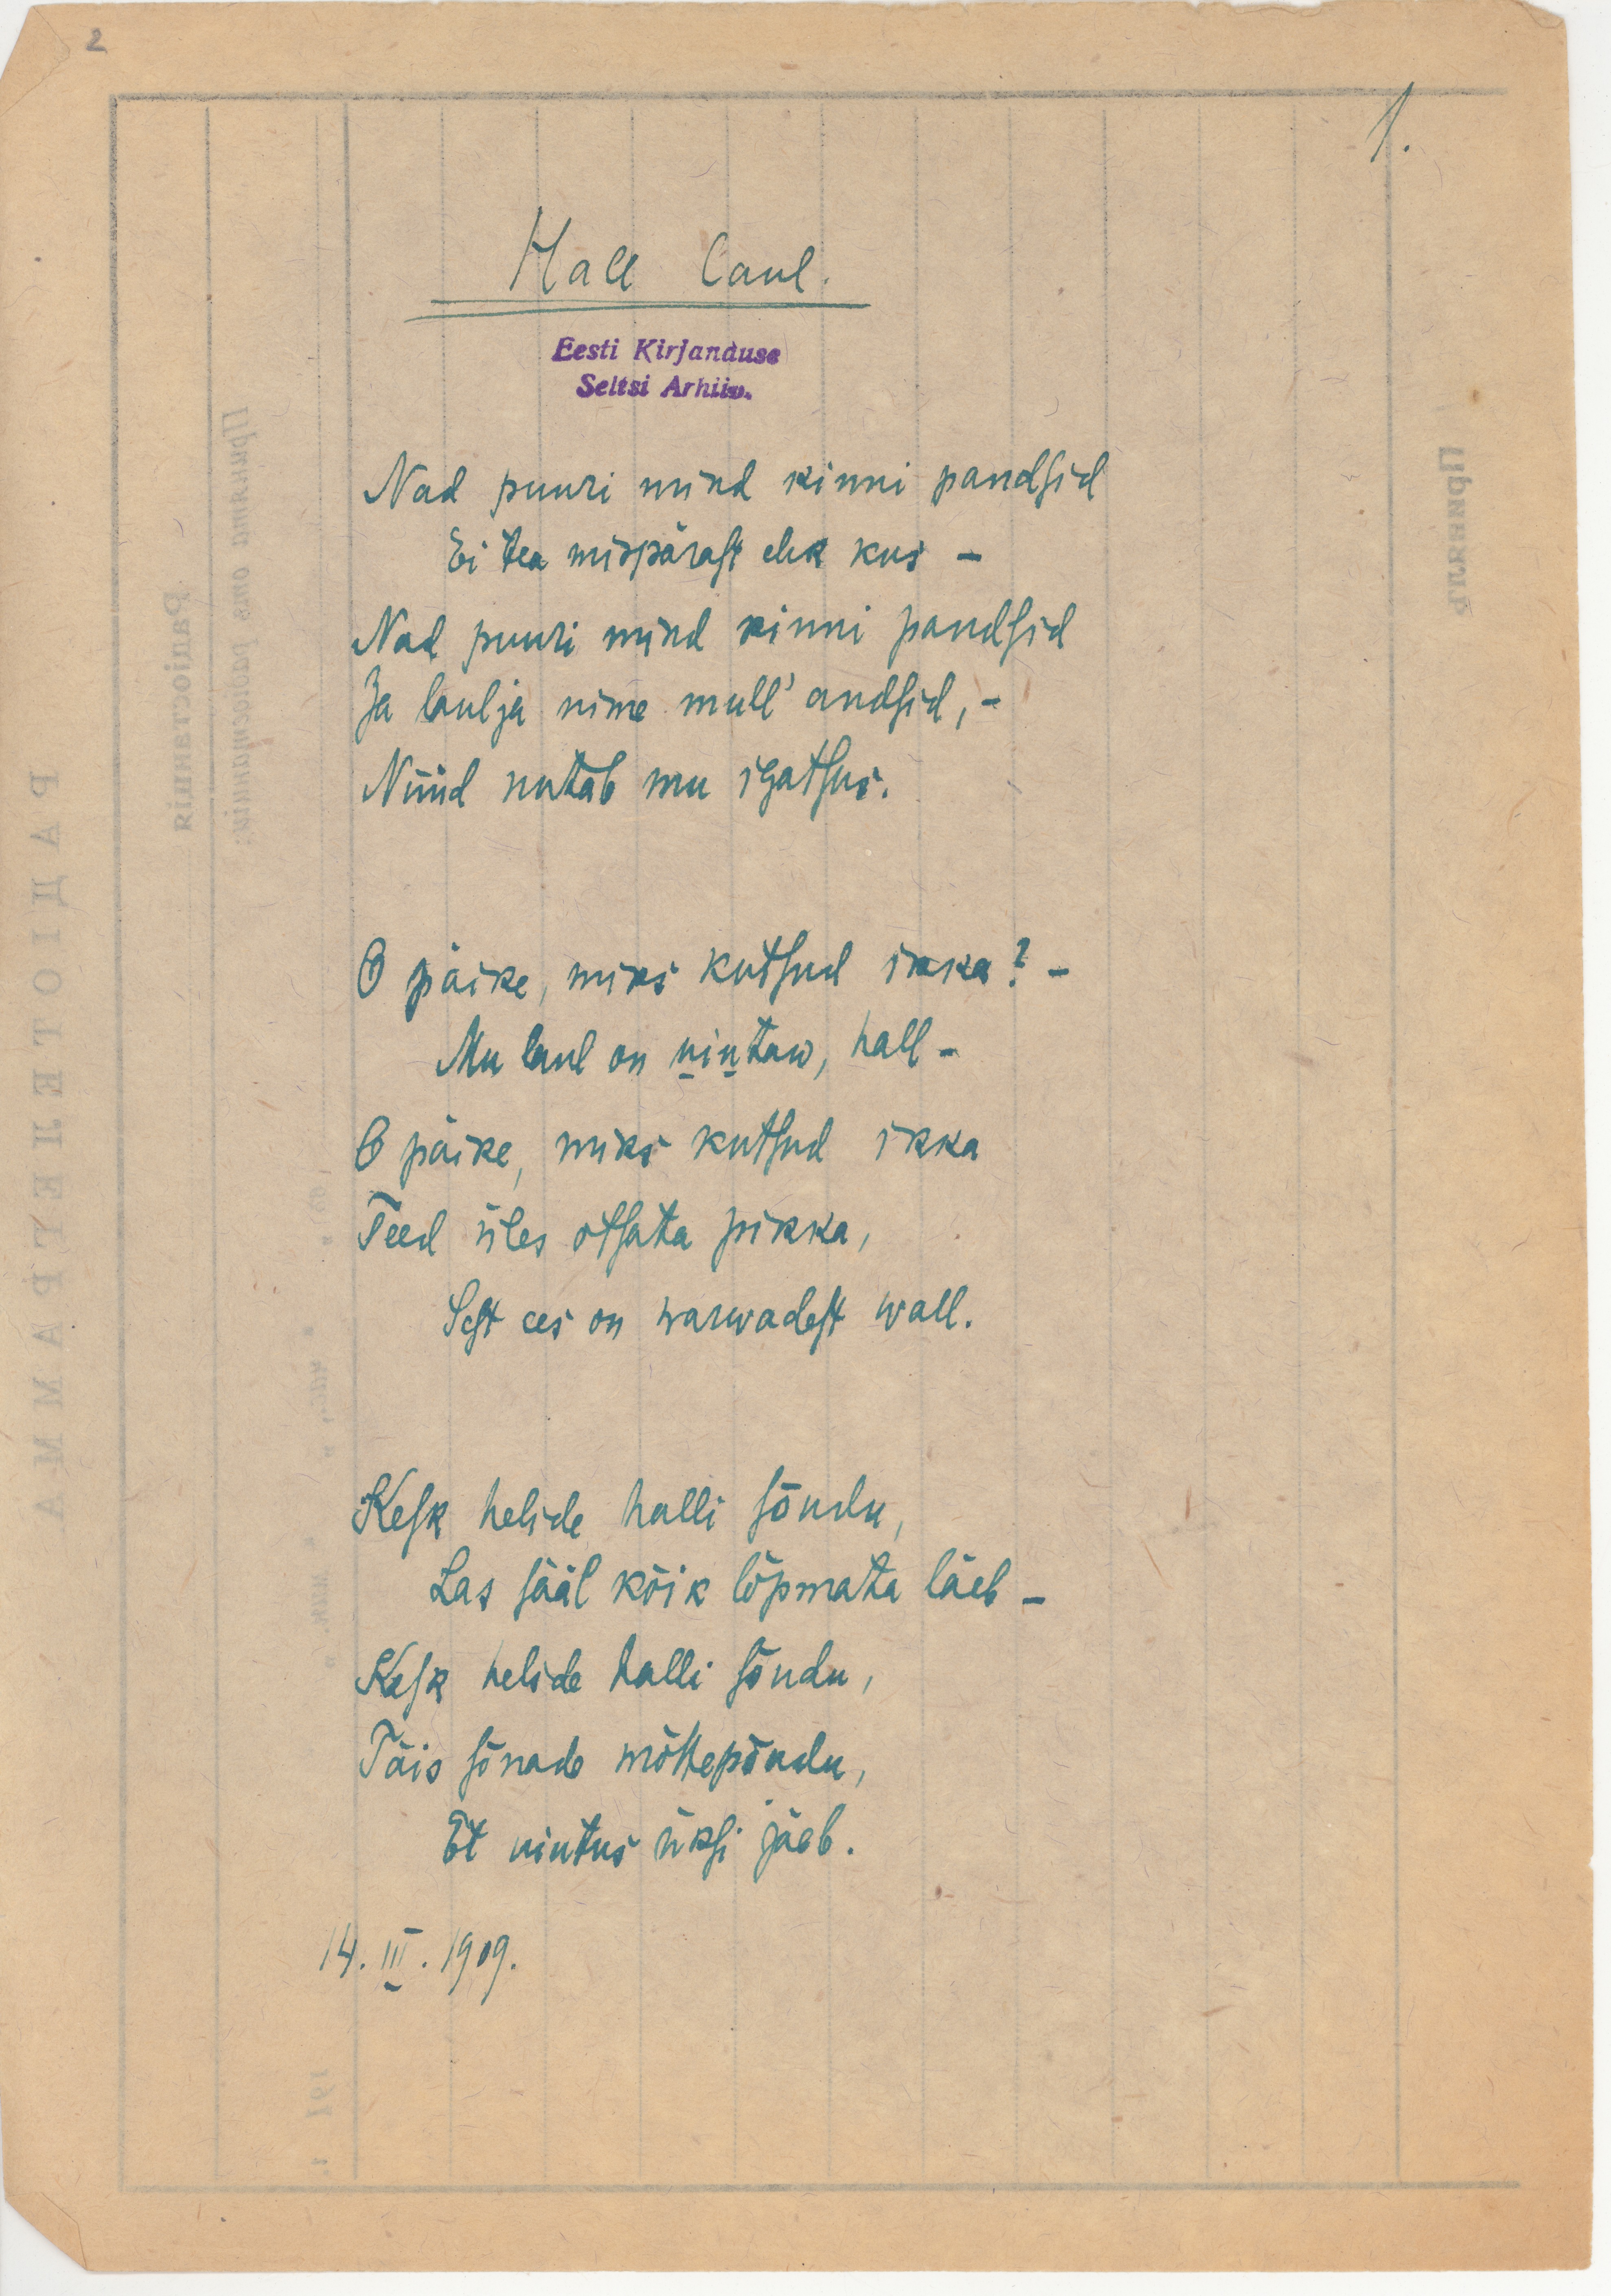 2
1.
Hall laul.
Eesti Kirjanduse
Seltsi Arhiiv.
Nad puuri mind kinni pandsid
Ei tea mispärast ehk kus –
Nad puuri mind kinni pandsid
Ja laulja nime mull' andsid, –
Nüüd nutab mu igatsus.
O päike, miks kutsud ikka? –
Mu laul on uiutaw, hall –
O päike, miks kutsud ikka
Teed üles otsata pikka,
Sest ees on warwadest wall.
Kesk helide halli sõudu,
Las sääl kõik lõpmata läeb –
Kesk helide halli sõudu,
Täis sõnade mõttepõudu,
Et uiutus üksi jäeb.
14. III. 1909.
РАДІОТЕЛЕГРАММА
Радіостанція
Принята отъ радіостанціи:
Принялъ
191 г.